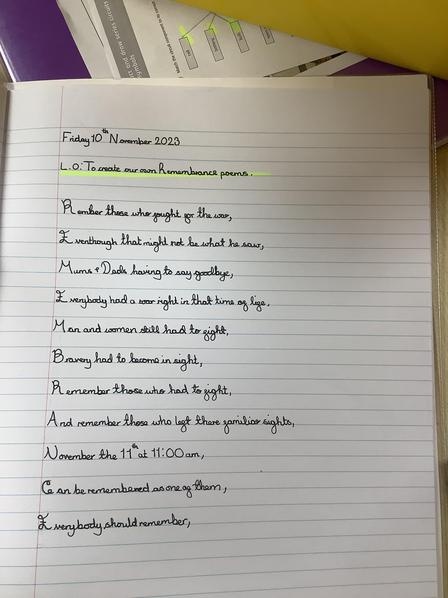 ct and draw series circuits
symbols
Match the circuit component to its symbol
Friday 10th November 2023
L.O: To create our own Remembrance poems.
Rember those who fought for the war,
Eventhough that might not be what he saw,
Mums + Dads having to say goodbye,
Everybody had a war right in that time of life.
Man and women still had to fight,
Bravery had to become in sight,
Remember those who had to fight,
And remember those who left there familiar sights,
November the 11th at 11:00am,
Can be remembered as one of them,
Everybody should remember,